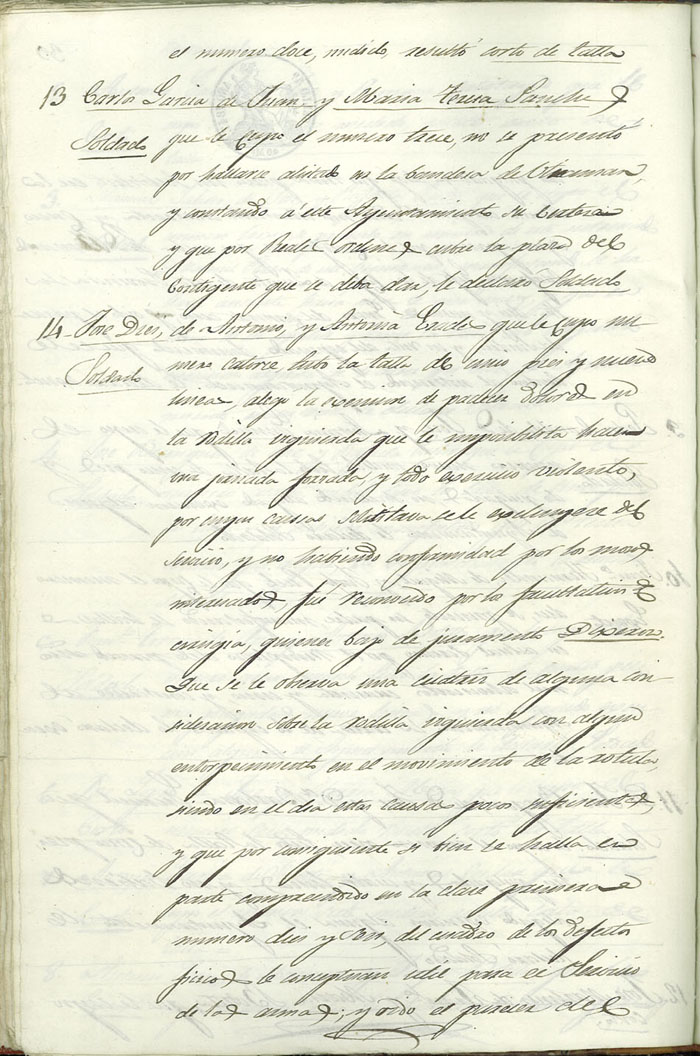 el numero doce, medido, resultó corto de talla
13 Carlos Garcia de Juan, y Maria Teresa Sanchez
Soldado que le cupo el numero trece, no se presentó
por hallarse alistado en la bandera de Ultramar,
y constando á este Ayuntamiento su certeza
y que por Reales ordenes cubre la plaza del
Contigente que se deba dar, le declaró Soldado
14 Jose Dies, de Antonio, y Antonia que le cupo nu-
Soldado mero catorce tubo la talla de cinco pies y nueve
lineas, alego la esencion de padecer dolores en
la rodilla izquierda que le imposibilita hacer
una jornada forzada, y todo exercicio violento,
por cuyas causas solicitava se le excluyere del
servicio, y no habiendo conformidad por los mozos
interesados fue reconocido por los facultativos de
cirugia, quienes bajo de juramento Dixeron.
Que se le observa una cicatris de alguna con-
sideracion sobre la rodilla izquierda con algun
entorpecimiento en el movimiento de la rotula,
siendo en el dia estas causas poco suficientes,
y que por consiguiente si bien se halla en
parte comprendido en la clase primera
numero dies y seis, del cuadro de los defectos
fisicos le conceptuan util para el Servicio
de las armas; y oido el parecer del